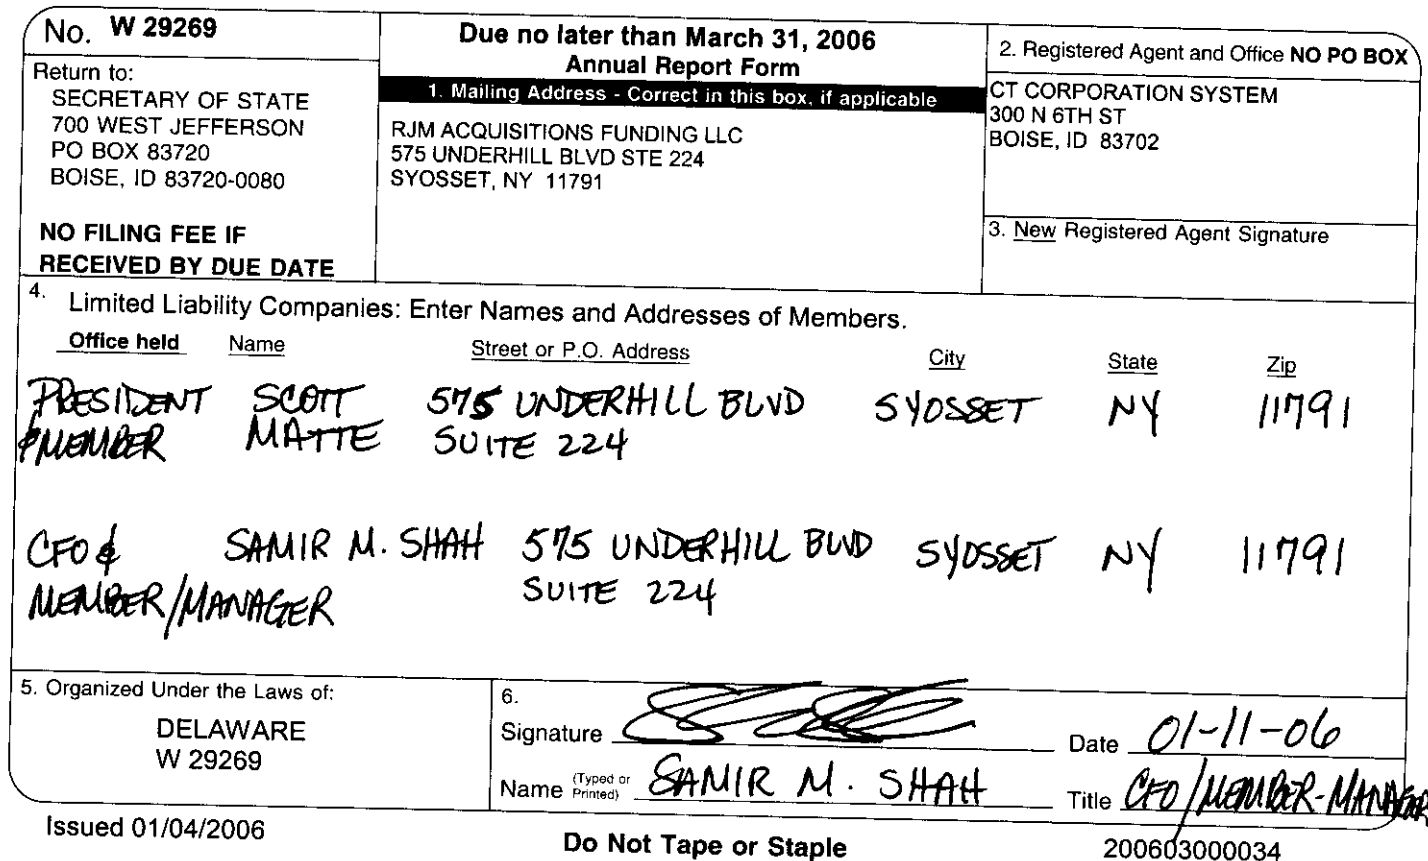 No. W 29269
Return to:
SECRETARY OF STATE
700 WEST JEFFERSON
PO BOX 83720
BOISE, ID 83720-0080
NO FILING FEE IF
RECEIVED BY DUE DATE
Due no later than March 31, 2006
Annual Report Form
1. Mailing Address - Correct in this box, if applicable
RJM ACQUISITIONS FUNDING LLC
575 UNDERHILL BLVD STE 224
SYOSSET, NY 11791
2. Registered Agent and Office NO PO BOX
CT CORPORATION SYSTEM
300 N 6TH ST
BOISE, ID 83702
3. New Registered Agent Signature
4. Limited Liability Companies: Enter Names and Addresses of Members.
Office held Name Street or P.O. Address City State Zip
PRESIDENT SCOTT 575 UNDERHILL BLVD SYOSSET NY 11791
& MEMBER MATTE SUITE 224
CFO & SAMIR M. SHAH 575 UNDERHILL BLVD SYOSSET NY 11791
MEMBER/MANAGER SUITE 224
5. Organized Under the Laws of:
DELAWARE
W 29269
6.
Signature Date 01-11-06
Name (Typed or Printed) SAMIR M. SHAH Title CFO/MEMBER-MANAGER
Issued 01/04/2006 Do Not Tape or Staple 200603000034